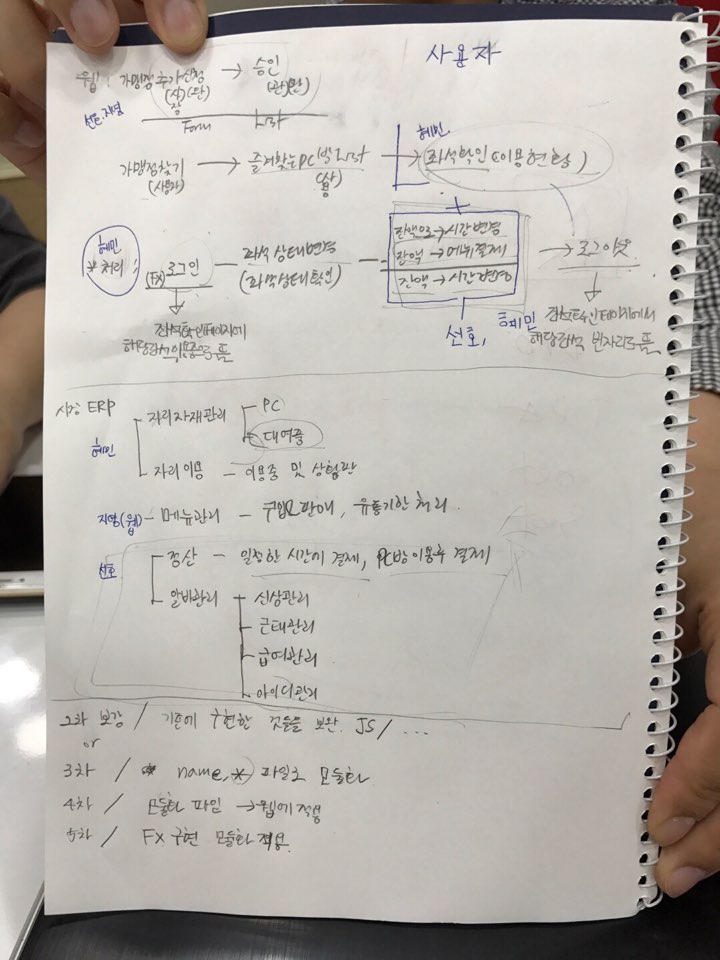 사용자
웹 가맹점 추가신청 → 승인
(사)(관) (관)(완)
장
선호, 지영
Form List
혜민
가맹점찾기 → 즐겨찾는PC방 List → (좌석확인 (이용현황)
(사용자) (사용)
+
혜민
* 처리
(FX) 로그인 — 좌석 상태변경 —
(좌석상태확인)
잔액으로→시간변경
잔액→메뉴결제
잔액→시간변경
→ 로그아웃
선호, 혜민
좌석확인페이지에
해당좌석 이용중으로 뜸
좌석확인페이지에서
해당좌석 빈자리로 뜸
사장 ERP
혜민
자리자재관리 PC
대여품
자리이용 — 이용중 및 상황판
지영(웹) — 메뉴관리 — 구입&판매, 유통기한 처리
선호
정산 — 일정한 시간에 결제, PC방이용후 결제
알바관리 신상관리
근태관리
급여관리
아이디관리
2차 보강 / 기존에 구현한 것들을 보완. JS / ...
or
3차 / name.* 파일로 모듈화
4차 / 모듈화 파일 → 웹에 적용
5차 / FX 구현 모듈화 적용.